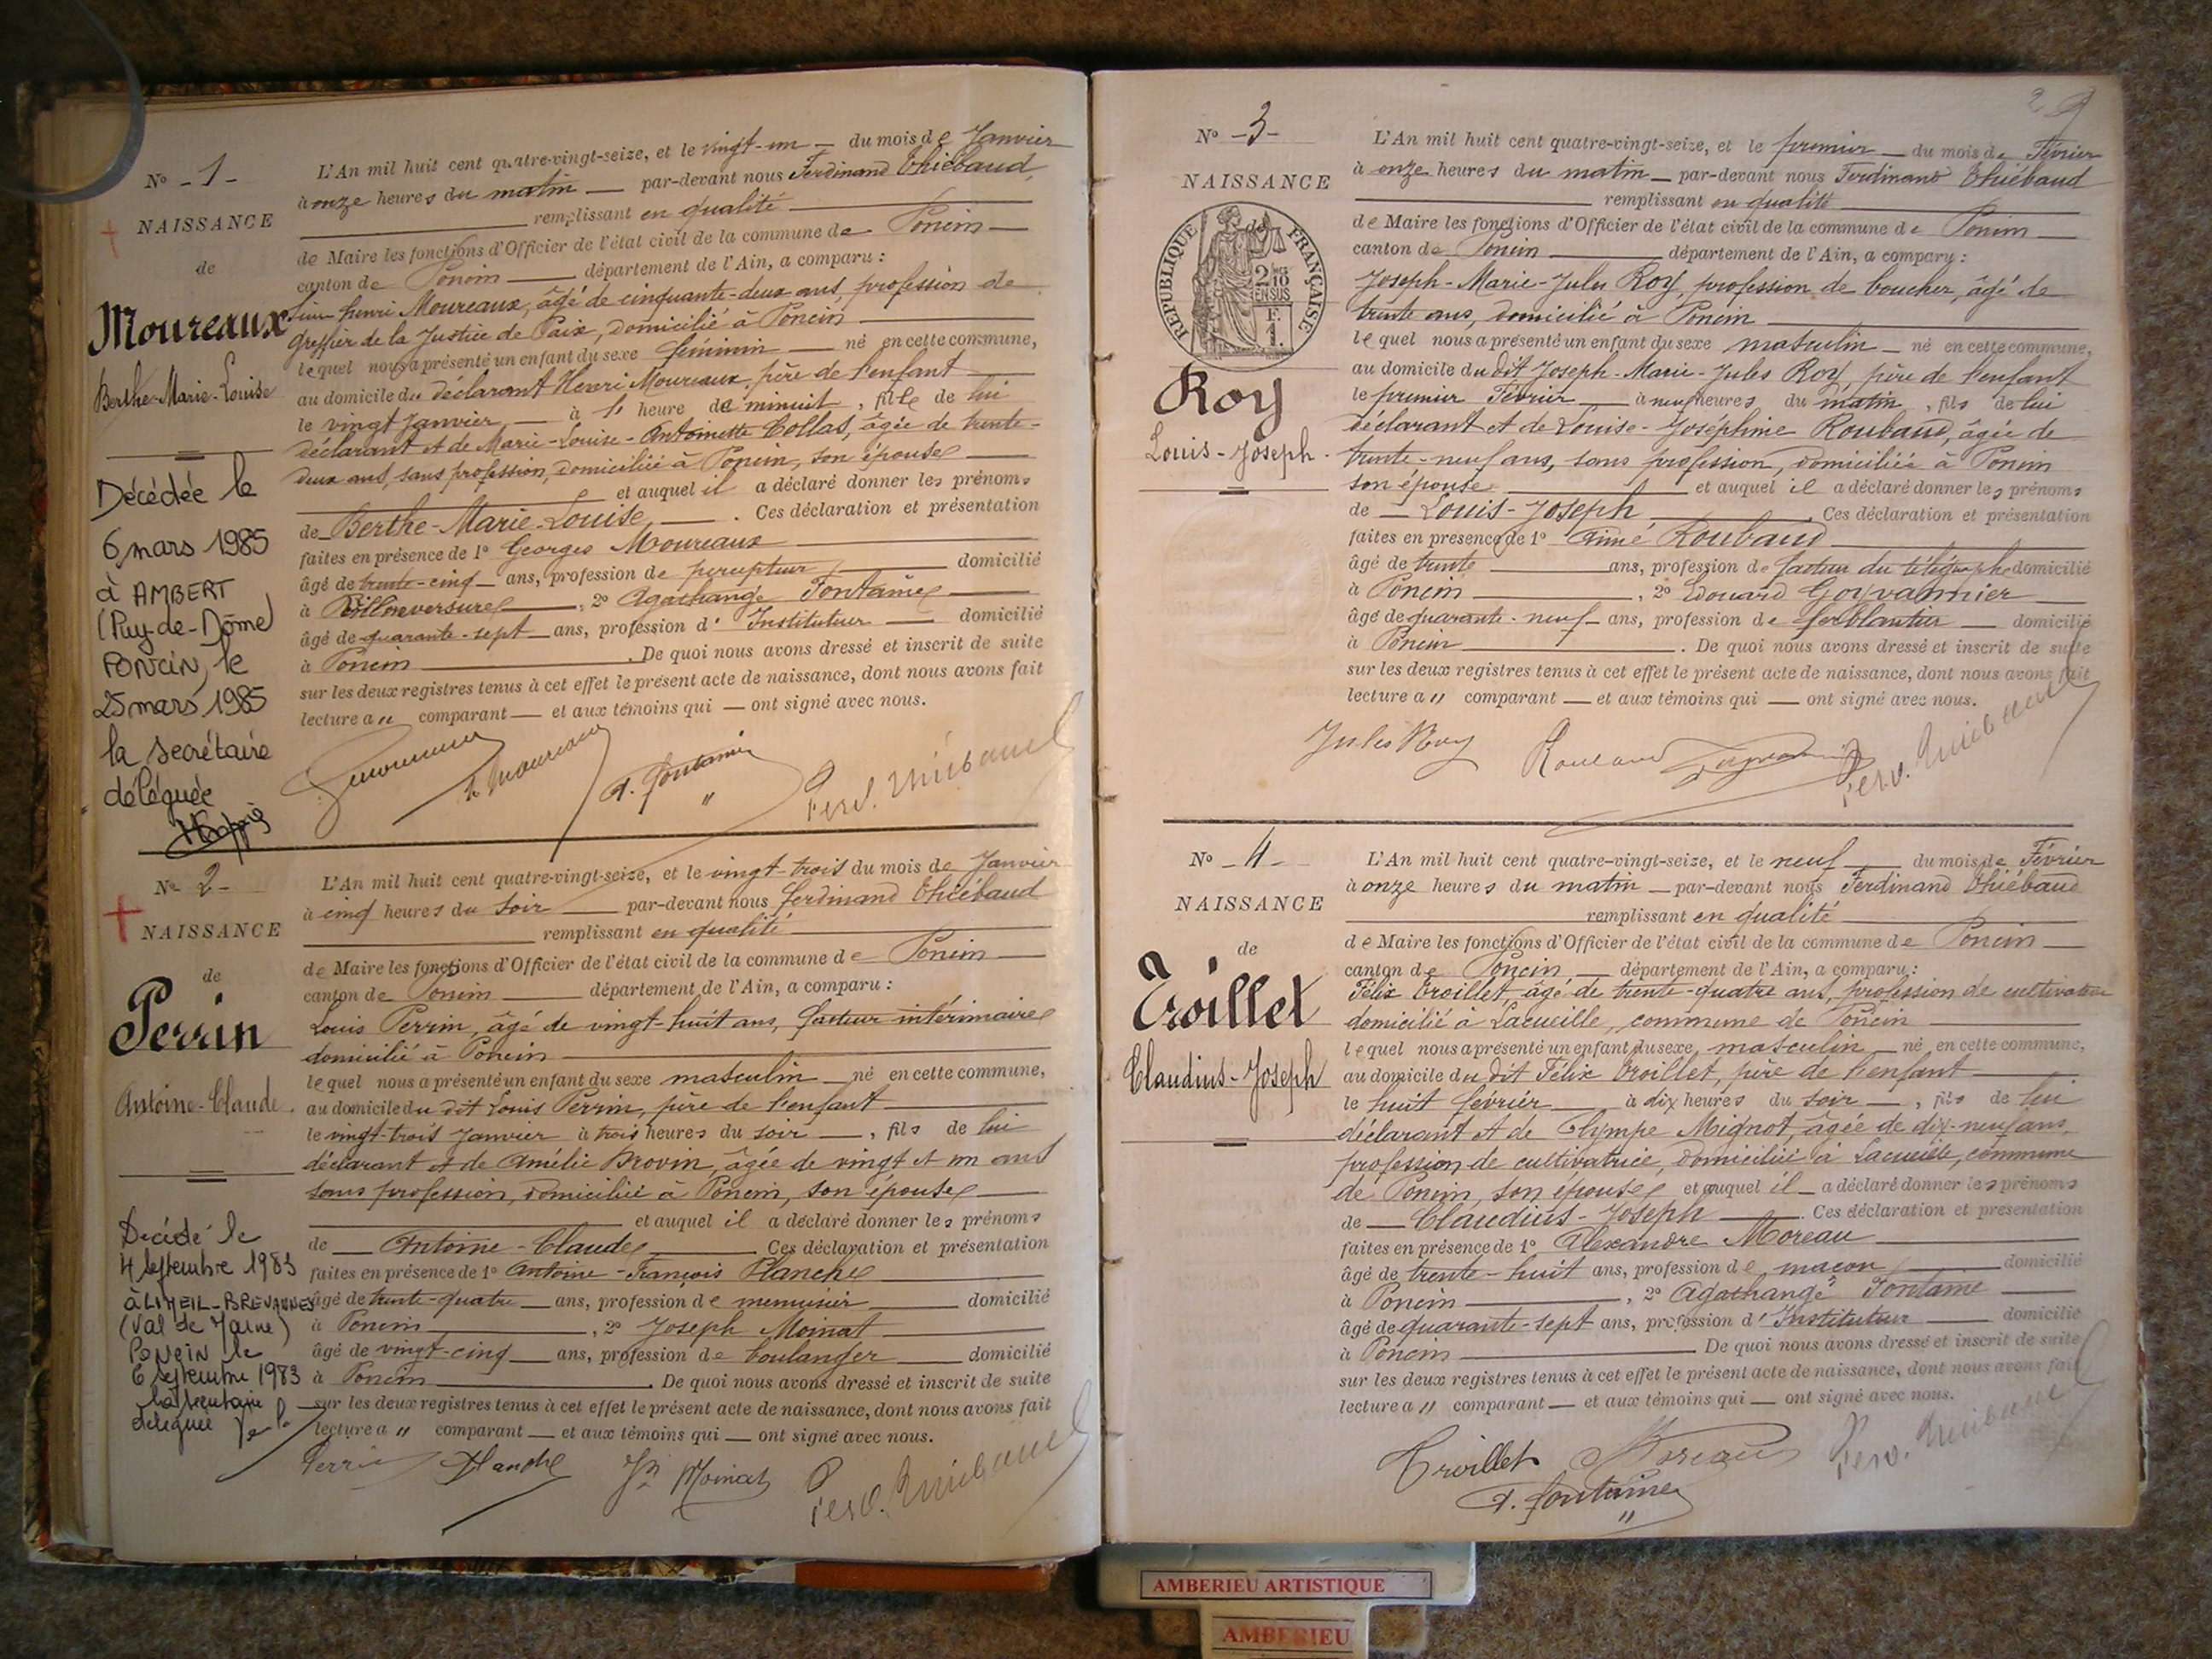 N° - 1 -
NAISSANCE
de
Moureaux
Berthe-Marie-Louise
Décédée le
6 mars 1985
à AMBERT
(Puy-de-Dôme)
PONCIN, le
25 mars 1985
la secrétaire
déléguée
L'An mil huit cent quatre-vingt-seize, et le vingt-un — du mois de Janvier
à onze heures du matin — par-devant nous Ferdinand Thiébaud,
remplissant en qualité
de Maire les fonctions d'Officier de l'état civil de la commune de Poncin
canton de Poncin — département de l'Ain, a comparu :
henri Moureaux, âgé de cinquante-deux ans, profession de
greffier de la Justice de Paix, domicilié à Poncin
lequel nous a présenté un enfant du sexe féminin — né en cette commune,
au domicile du déclarant Henri Moureaux, père de l'enfant
le vingt Janvier — à heure de minuit, fille de lui
déclarant et de Marie-Louise-Antoinette Collas, âgée de trente-
deux ans, sans profession, domiciliée à Poncin, son épouse
et auquel il a déclaré donner les prénoms
de Berthe-Marie-Louise — . Ces déclaration et présentation
faites en présence de 1° Georges Moureaux
âgé de trente-cinq — ans, profession de percepteur — domicilié
à , 2° Agathange Fontaine
âgé de quarante-sept — ans, profession d' Instituteur — domicilié
à Poncin — . De quoi nous avons dressé et inscrit de suite
sur les deux registres tenus à cet effet le présent acte de naissance, dont nous avons fait
lecture au comparant — et aux témoins qui — ont signé avec nous.
A. Fontaine
Ferd. Thiébaud
N° 2 -
NAISSANCE
de
Perrin
Antoine-Claude
Décédé le
4 Septembre 1983
à LIMEIL-BREVANNES
(Val de Marne)
Poncin le
6 septembre 1983
la secrétaire
déléguée
L'An mil huit cent quatre-vingt-seize, et le vingt-trois du mois de Janvier
à cinq heures du soir — par-devant nous Ferdinand Thiébaud
remplissant en qualité
de Maire les fonctions d'Officier de l'état civil de la commune de Poncin
canton de Poncin — département de l'Ain, a comparu :
Louis Perrin, âgé de vingt-huit ans, facteur intérimaire
domicilié à Poncin
lequel nous a présenté un enfant du sexe masculin — né en cette commune,
au domicile du dit Louis Perrin, père de l'enfant
le vingt-trois Janvier à trois heures du soir — , fils de lui
déclarant et de Amélie Brovin, âgée de vingt et un ans
sans profession, domiciliée à Poncin, son épouse
et auquel il a déclaré donner les prénoms
de — Antoine-Claude — Ces déclaration et présentation
faites en présence de 1° Antoine-François Planche
âgé de trente-quatre — ans, profession de menuisier — domicilié
à Poncin — , 2° Joseph Moinat
âgé de vingt-cinq — ans, profession de boulanger — domicilié
à Poncin — . De quoi nous avons dressé et inscrit de suite
sur les deux registres tenus à cet effet le présent acte de naissance, dont nous avons fait
lecture au comparant — et aux témoins qui — ont signé avec nous.
Perrin Planche Jh Moinat Ferd. Thiébaud
2
N° - 3 -
NAISSANCE
de
REPUBLIQUE FRANÇAISE
Roy
Louis-Joseph
L'An mil huit cent quatre-vingt-seize, et le premier — du mois de Février
à onze heures du matin — par-devant nous Ferdinand Thiébaud
remplissant en qualité
de Maire les fonctions d'Officier de l'état civil de la commune de Poncin
canton de Poncin — département de l'Ain, a comparu :
Joseph-Marie-Jules Roy, profession de boucher, âgé de
trente ans, domicilié à Poncin
lequel nous a présenté un enfant du sexe masculin — né en cette commune,
au domicile du dit Joseph-Marie-Jules Roy, père de l'enfant
le premier Février — à neuf heures du matin, fils de lui
déclarant et de Louise-Joséphine Roubaud, âgée de
trente-neuf ans, sans profession, domiciliée à Poncin
son épouse — et auquel il a déclaré donner les prénoms
de — Louis-Joseph — Ces déclaration et présentation
faites en présence de 1° Aimé Roubaud
âgé de trente — ans, profession de facteur du télégraphe domicilié
à Poncin — , 2° Edouard Goyvannier
âgé de quarante-neuf — ans, profession de ferblantier — domicilié
à Poncin — . De quoi nous avons dressé et inscrit de suite
sur les deux registres tenus à cet effet le présent acte de naissance, dont nous avons fait
lecture au comparant — et aux témoins qui — ont signé avec nous.
Jules Roy Roubaud Ferd. Thiébaud
N° - 4 -
NAISSANCE
de
Troillet
Claudius-Joseph
L'An mil huit cent quatre-vingt-seize, et le neuf — du mois de Février
à onze heures du matin — par-devant nous Ferdinand Thiébaud
remplissant en qualité
de Maire les fonctions d'Officier de l'état civil de la commune de Poncin
canton de Poncin — département de l'Ain, a comparu :
Félix Troillet, âgé de trente-quatre ans, profession de cultivateur
domicilié à Lacueille, commune de Poncin
lequel nous a présenté un enfant du sexe masculin — né en cette commune,
au domicile du dit Félix Troillet, père de l'enfant
le huit février — à dix heures du soir — , fils de lui
déclarant et de Olympe Mignot, âgée de dix-neuf ans,
profession de cultivatrice, domiciliée à Lacueille, commune
de Poncin, son épouse et auquel il — a déclaré donner les prénoms
de — Claudius-Joseph — . Ces déclaration et présentation
faites en présence de 1° Alexandre Moreau
âgé de trente-huit ans, profession de maçon — domicilié
à Poncin — , 2° Agathange Fontaine
âgé de quarante-sept ans, profession d' Instituteur — domicilié
à Poncin — De quoi nous avons dressé et inscrit de suite
sur les deux registres tenus à cet effet le présent acte de naissance, dont nous avons fait
lecture au comparant — et aux témoins qui — ont signé avec nous.
Troillet Moreau Ferd. Thiébaud
A. Fontaine
AMBERIEU ARTISTIQUE
AMBERIEU